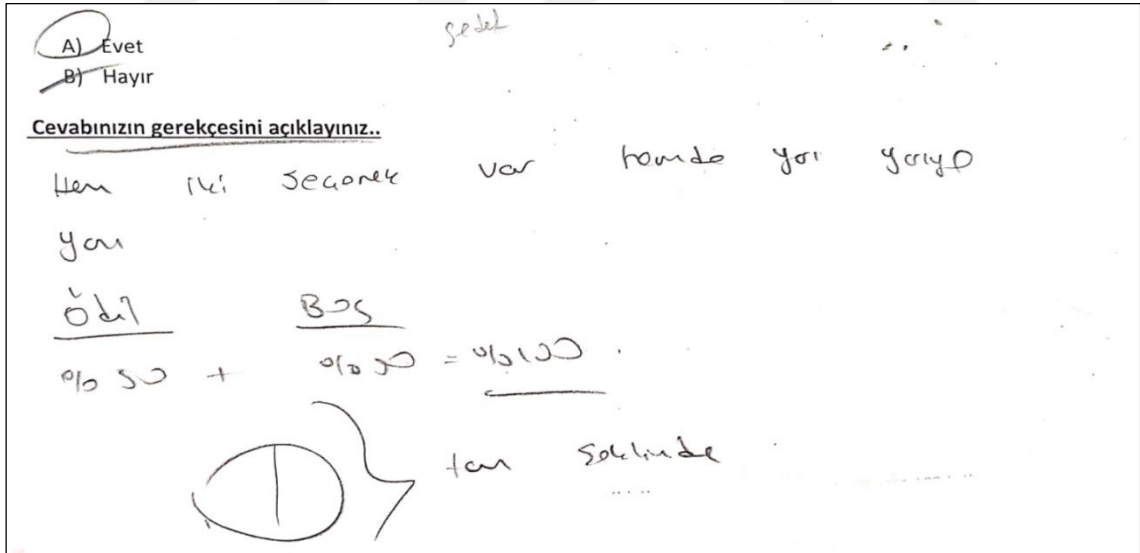 A) Evet
B) Hayır
Cevabınızın gerekçesini açıklayınız..
Hem iki seçenek var hemde yarı yarıya
yarı
Ödül Boş
%50 + %50 = %100.
tam şeklinde